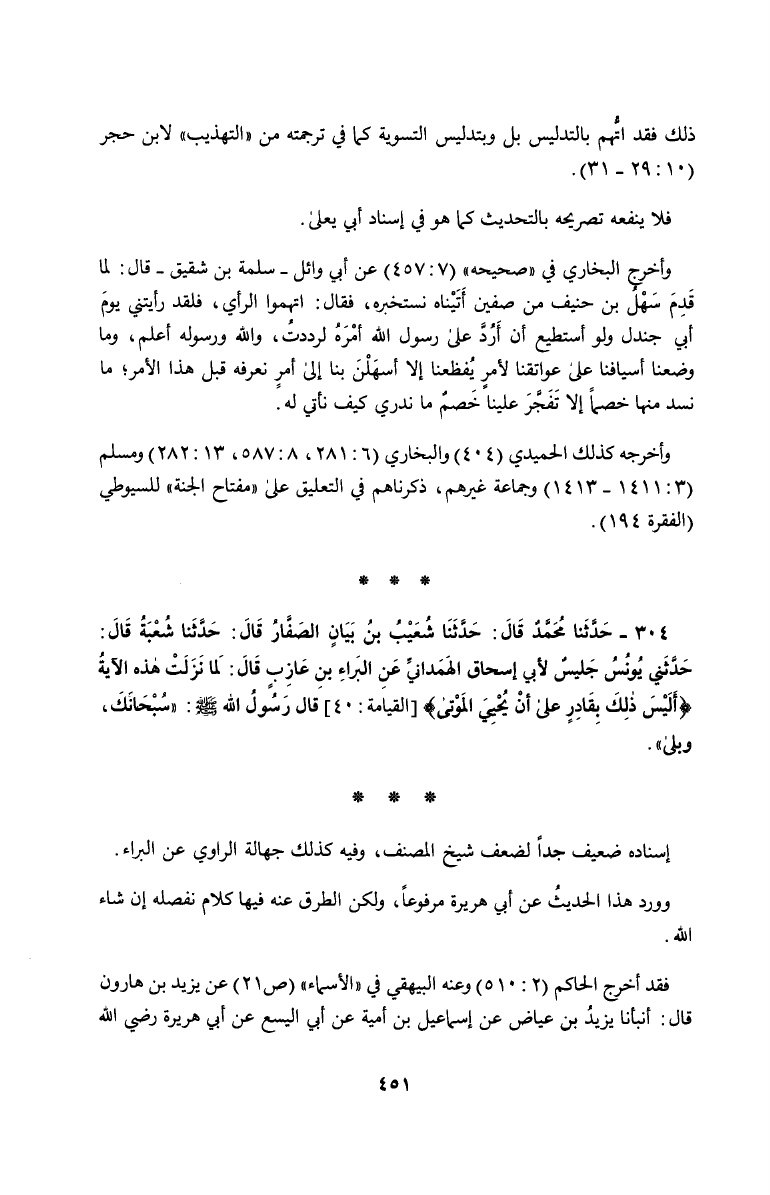 ذلك فقد اتُّهم بالتدليس بل وبتدليس التسوية كما في ترجمته من «التهذيب» لابن حجر
(١٠: ٢٩ - ٣١).
فلا ينفعه تصريحه بالتحديث كما هو في إسناد أبي يعلىٰ.
وأخرج البخاري في «صحيحه» (٧: ٤٥٧) عن أبي وائل - سلمة بن شقيق - قال: لما
قَدِمَ سَهْلُ بن حنيف من صفين أَتَيْناه نستخبره، فقال: اتهموا الرأي، فلقد رأيتني يومَ
أبي جندل ولو أستطيع أن أَرُدَّ علىٰ رسول الله أمْرَهُ لرددتُ، والله ورسوله أعلم، وما
وضعنا أسيافنا علىٰ عواتقنا لأمرٍ يُفظعنا إلا أسهَلْنَ بنا إلىٰ أمرٍ نعرفه قبل هذا الأمر؛ ما
نسد منها خصماً إلا تَفَجَّرَ علينا خَصمٌ ما ندري كيف نأتي له.
وأخرجه كذلك الحميدي (٤٠٤) والبخاري (٦: ٢٨١، ٨: ٥٨٧، ١٣: ٢٨٢) ومسلم
(٣: ١٤١١ - ١٤١٣) وجماعة غيرهم، ذكرناهم في التعليق علىٰ «مفتاح الجنة» للسيوطي
(الفقرة ١٩٤).
* * *
٣٠٤ - حَدَّثَنا مُحَمَّدٌ قَالَ: حَدَّثَنا شُعَيْبُ بنُ بَيَانِ الصَفَّارُ قَالَ: حَدَّثَنا شُعْبَةُ قَالَ:
حَدَّثَني يُونُسُ جَليسٌ لأبي إسحاق الهَمدانيِّ عَنِ البَراءِ بنِ عَازِبٍ قَالَ: لَمَا نَزَلَتْ هٰذه الآيةُ
﴿أَلَيْسَ ذٰلِكَ بِقَادِرٍ علىٰ أنْ يُحْيِيَ المَوْتىٰ﴾ [القيامة: ٤٠] قال رَسُولُ الله ﷺ: «سُبْحَانَكَ،
وبلىٰ».
* * *
إسناده ضعيف جداً لضعف شيخ المصنف، وفيه كذلك جهالة الراوي عن البراء.
وورد هذا الحديثُ عن أبي هريرة مرفوعاً، ولكن الطرق عنه فيها كلام نفصله إن شاء
الله.
فقد أخرج الحاكم (٢: ٥١٠) وعنه البيهقي في «الأسماء» (ص٢١) عن يزيد بن هارون
قال: أنبأنا يزيدُ بن عياض عن إسماعيل بن أمية عن أبي اليسع عن أبي هريرة رضي الله
٤٥١